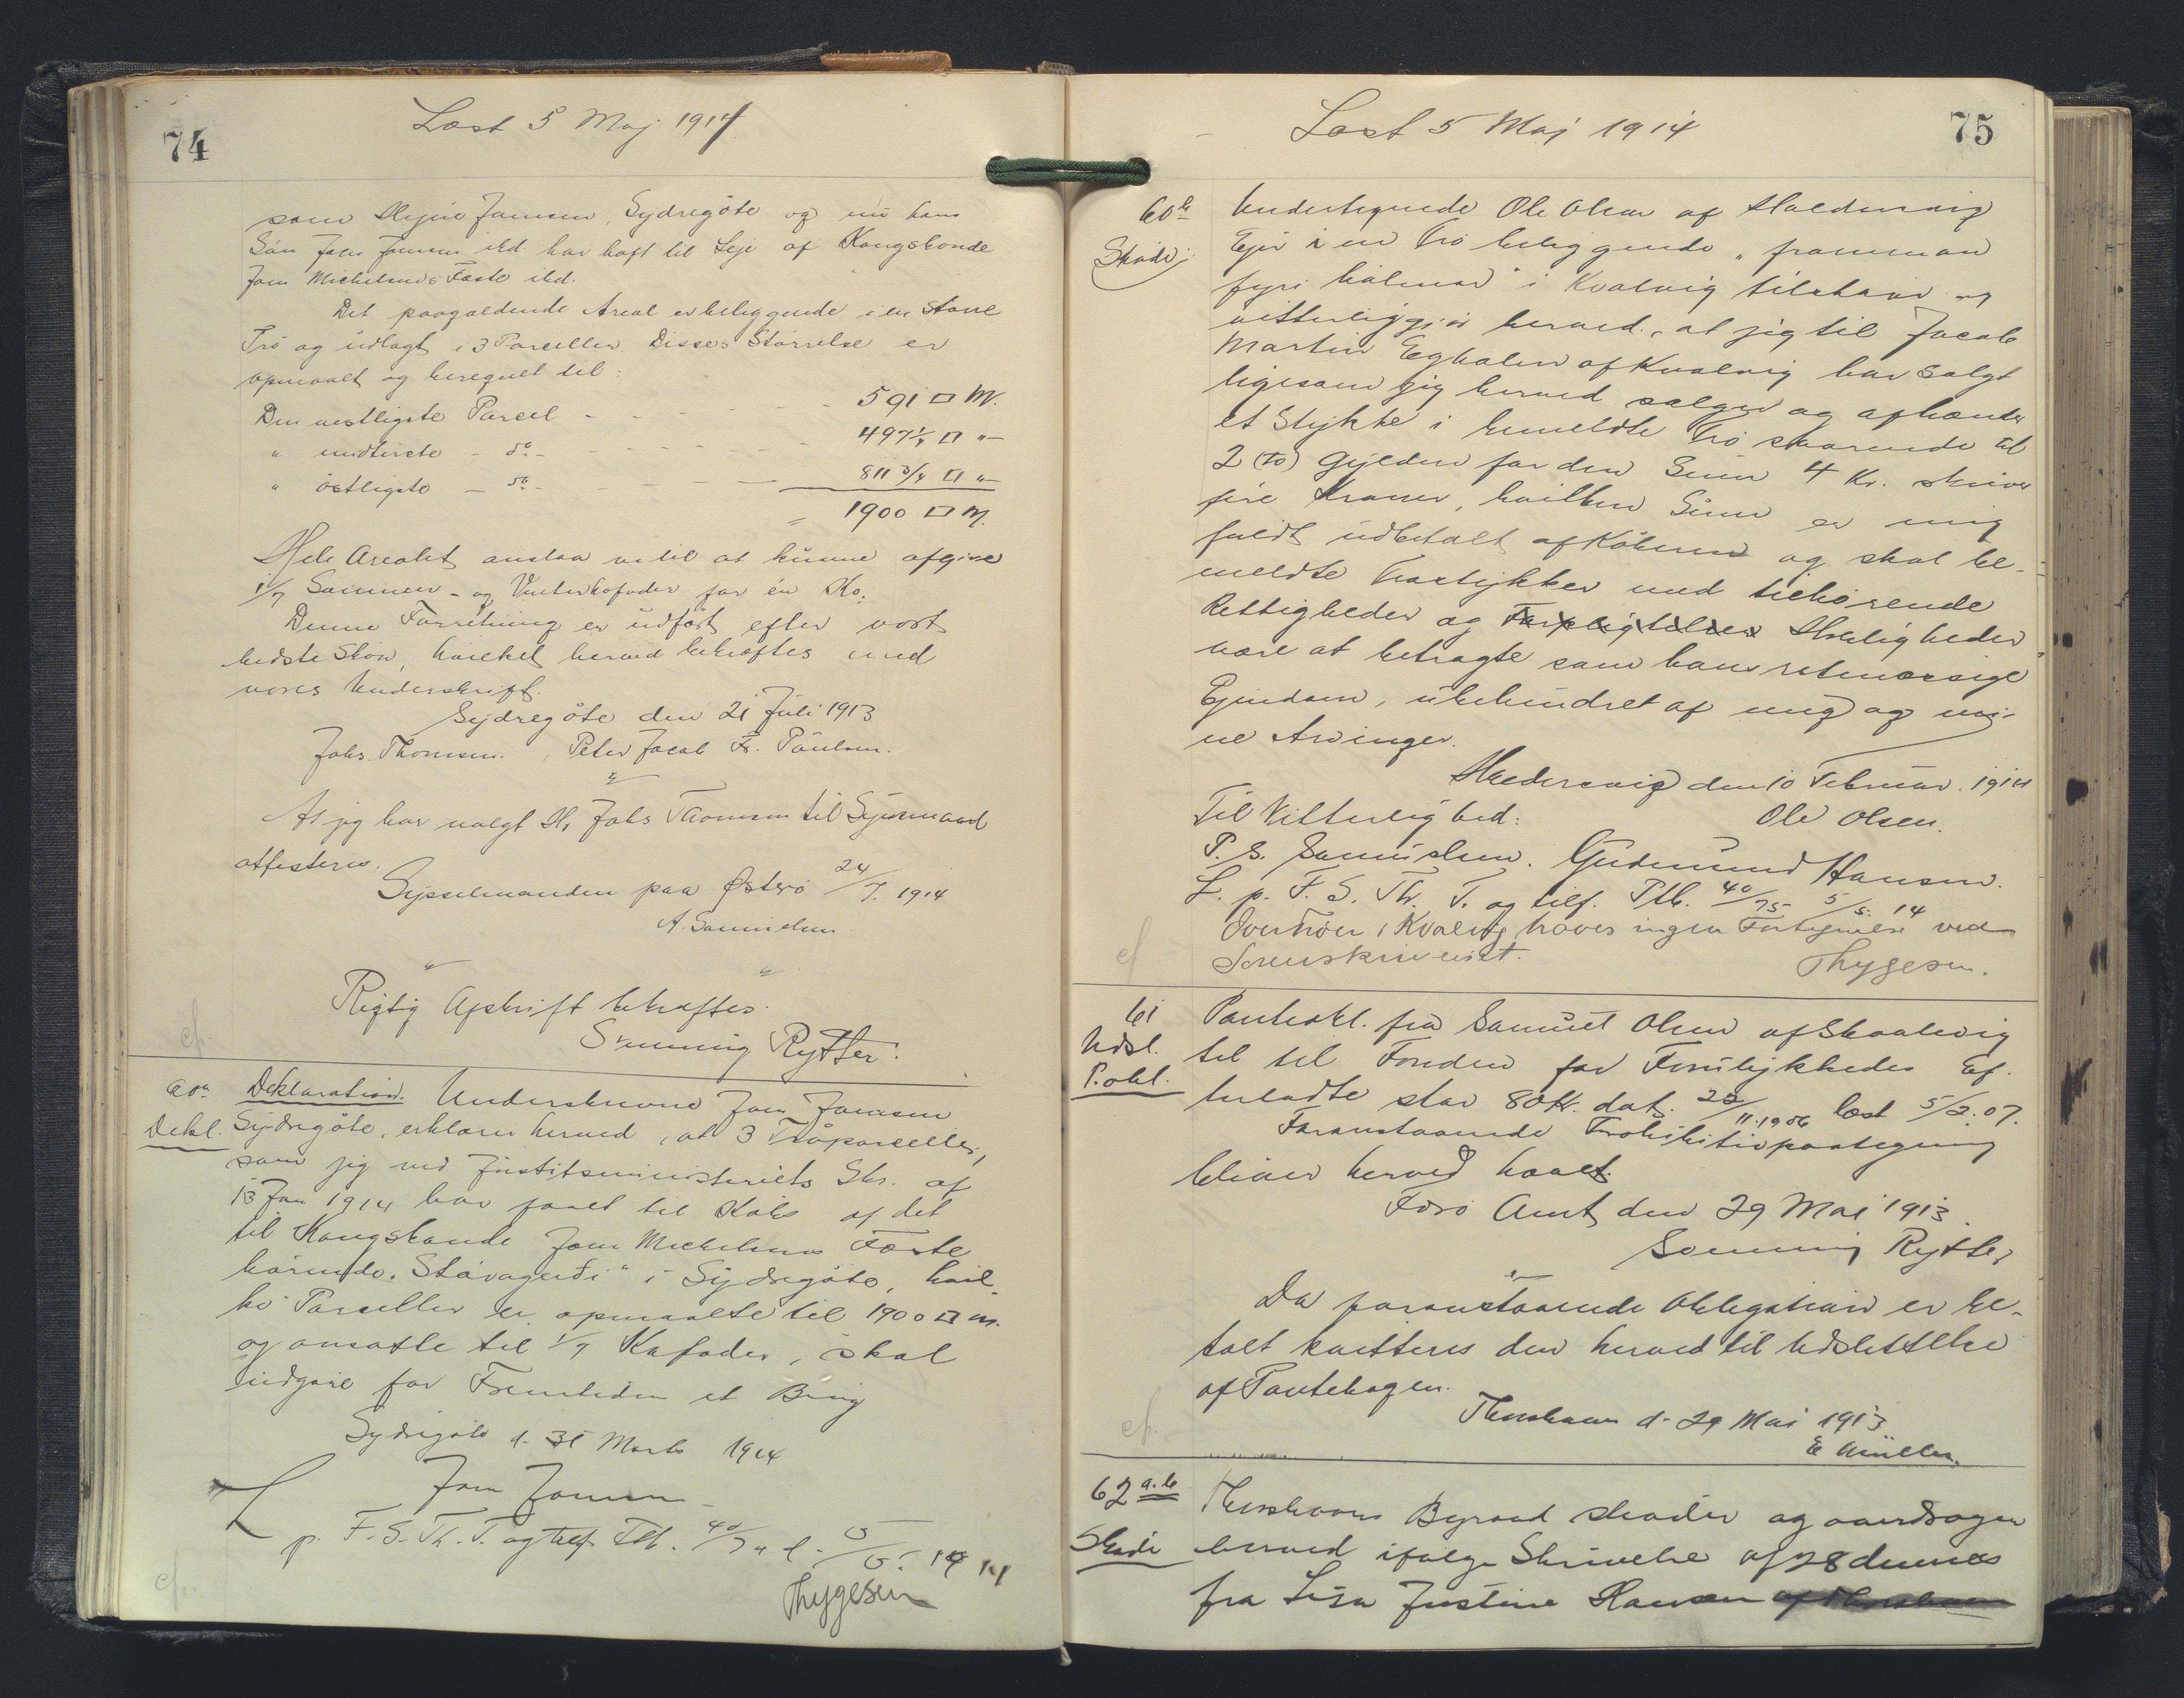 74
Læst 5 Maj 1914
som Hejne Joensen, Sydregöte og nu hans
Sön Joen Joensen ibd har haft til Leje af Kongsbonde
Joen Michelsens Fæste ibd.
Det paagældende Areal er beliggende i en större
Trö og udlagt i 3 Parceller. Disses Störrelse er
opmaalt og beregnet til:
Den vestligste Parcel - 591 □ M.
" midterste - do - 497 1/4 □ "
" östligste - do - 811 3/4 □ "
1900 □ M.
Hele Arealet anslaa vi til at kunne afgive
1/7 Sommer- og Vinterkofoder for én Ko.
Denne Forretning er udfört efter vort
bedste Skön, hvilket herved bekræftes med
vores Underskrift.
Sydregöte den 21 Juli 1913
Johs. Thomsen. , Peter Jacob Fr. Poulsen.
At jeg har valgt Hr Johs Thomsen til Synsmand
attesteres.
Sysselmanden paa Østerö 24/7. 1914
A. Samuelsen
Rigtig Afskrift bekræftes.
Svenning Rytter.
60a Deklaration. Underskrevne Joen Joensen
Dekl. Sydregöte, erklærer herved, at 3 Tröparceller,
som jeg ved Justitsministeriets Skr. af
13 Jan 1914 har faaet til Köbs af det
til Kongsbonde Joen Michelsens Fæste
hörende "Stóvagerdi" i Sydregöte, hvil-
ke Parceller er opmaalte til 1900 □ m.
og ansatte til 1/7 Kofoder, skal
udgöre for Fremtiden et Brug
Sydregöte d. 31 Marts 1914
Joen Joensen
L p. F. S. Th. T. og tilf. Ptb. 40/74 d. 5/5. 1914
Thygesen
75
Læst 5 Maj 1914
60b Undertegnede Ole Olsen af Haldersvig
Sköde Ejer i en Trö beliggende "framman
fyri hálmar" i Kvalvig tilstaar og
vitterliggjör herved, at jeg til Jacob
Martin Egholm af Kvalvig har solgt
ligesom jeg herved sælger og afhænder
et Stykke i bemeldte Trö svarende til
2 (to) Gylden for den Sum 4 Kr. skriver
fire Kroner, hvilken Sum er mig
fuldt udbetalt af Köberen og skal be-
meldte Tröstykker med tilhörende
Rettigheder og Forpligtelser Herligheder
være at betragte som hans retmæssige
Ejendom, ubehindret af mig og mi-
ne Arvinger.
Haldersvig den 10 Februar. 1914
Til Vitterlighed: Ole Olsen.
P. S. Samuelsen. Gudmund Hansen.
L. p. F. S. Th. T. og tilf. Ptb. 40/75 5/5. 14
Over Tröer i Kvalvig haves ingen Fortegnelse ved
Sorenskriveriet. Thygesen.
61 Panteobl. fra Samuel Olsen af Skaalevig
Udsl. til til Fonden for Forulykkedes Ef-
P.obl. terladte stor 80 Kr. dat. 22/11.1906 læst 5/2.07.
Foranstaaende Prohibitivpaategning
bliver herved hævet.
Færö Amt, den 29 Mai 1913.
Svenning Rytter
Da foranstaaende Obligation er be-
talt kvitteres den herved til Udslettelse
af Pantebogen.
Thorshavn d. 29 Mai 1913
E Müller.
62 a.b Thorshavns Byraad skøder og overdrager
Sköde herved ifölge Skrivelse af 28 dennes
fra Lisa Justine Hansen